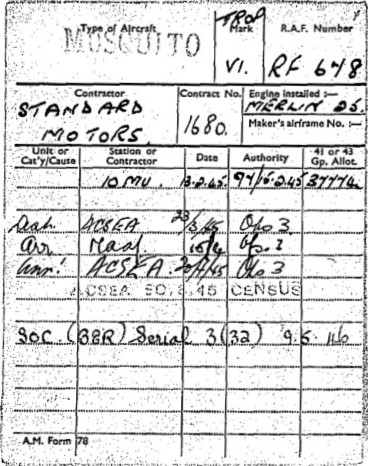 Type of Aircraft
MOSQUITO
TROP
Mark
VI.
R.A.F. Number
RF 648
Contractor
STANDARD
MOTORS
Contract No.
1680.
Engine installed :—
MERLIN 25.
Maker's airframe No. :—
Unit or Cat'y/Cause Station or Contractor Date Authority 41 or 43 Gp. Allot.
10 MU. 13.2.45 15.2.45 37774
ACSEA 23/3/45 Ops 3
Arr Maaf
ACSEA. Ops 3
ACSEA 30.6.45 CENSUS
SOC. (BER) Serial 3(32) 9.5.46
A.M. Form 78